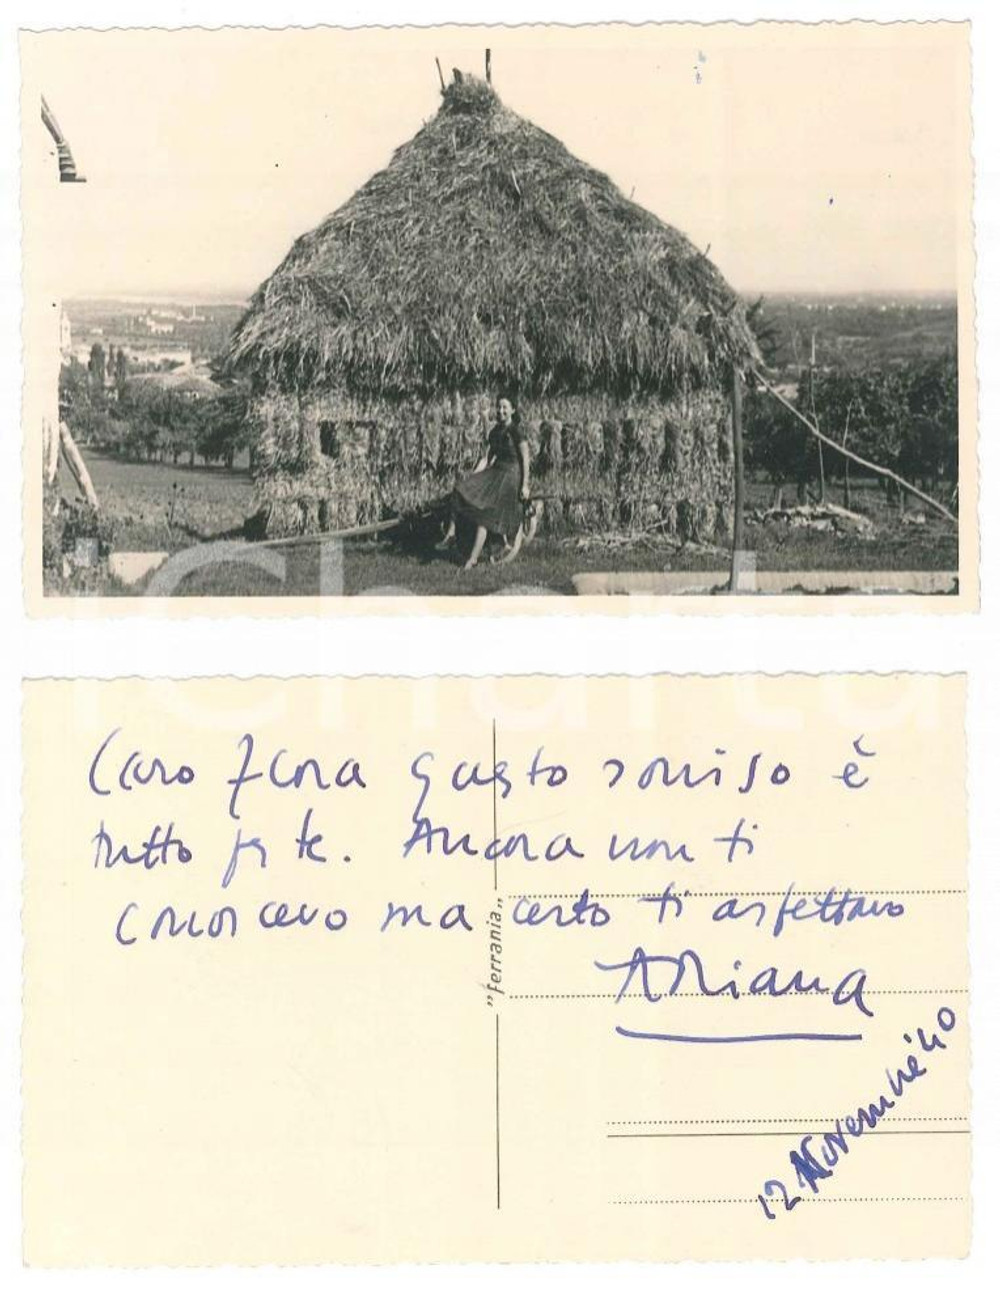 Caro questo sorriso è
tutto per te. Ancora non ti
conoscevo ma certo ti aspettavo
Ariana
12 Novembre '40
"ferrania"
iCharta
iCharta